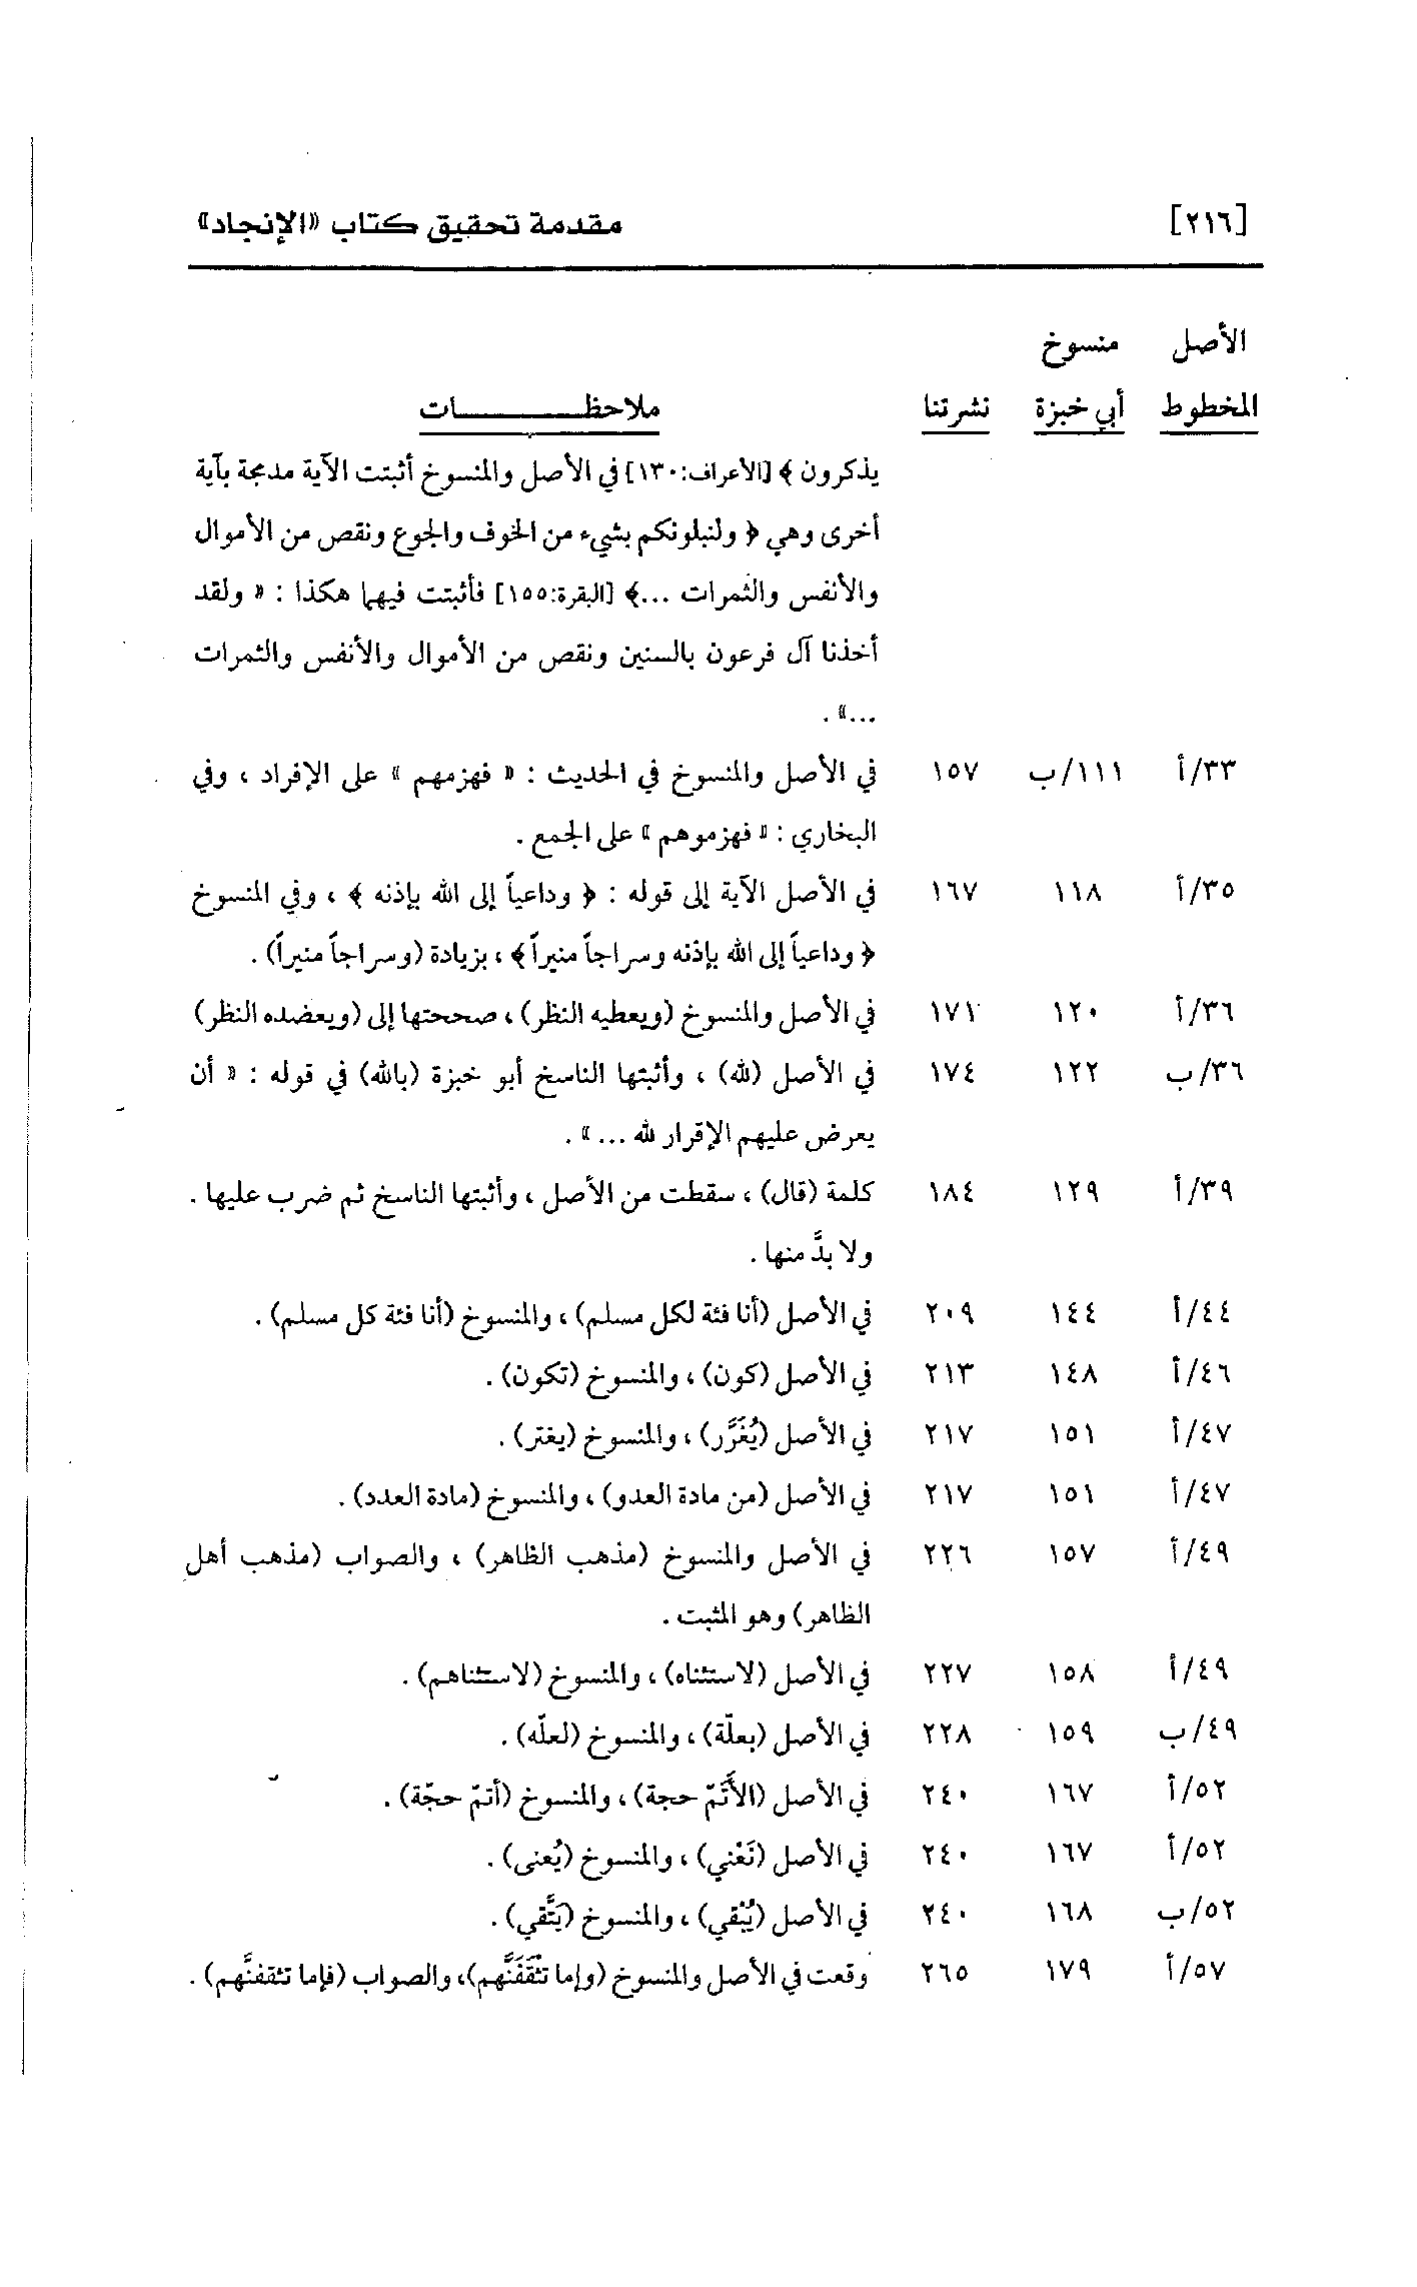 [٢١٦] مقدمة تحقيق كتاب «الإنجاد»
الأصل منسوخ
المخطوط أبي خبزة نشرتنا ملاحظـــــــــــات
يذكرون ﴾ [الأعراف:١٣٠] في الأصل والمنسوخ أثبتت الآية مدمجة بآية
أخرى وهي ﴿ ولنبلونكم بشيء من الخوف والجوع ونقص من الأموال
والأنفس والثمرات ...﴾ [البقرة:١٥٥] فأثبتت فيهما هكذا : « ولقد
أخذنا آل فرعون بالسنين ونقص من الأموال والأنفس والثمرات
...» .
٣٣/أ ١١١/ب ١٥٧ في الأصل والمنسوخ في الحديث : « فهزمهم » على الإفراد ، وفي
البخاري : « فهزموهم » على الجمع .
٣٥/أ ١١٨ ١٦٧ في الأصل الآية إلى قوله : ﴿ وداعياً إلى الله بإذنه ﴾ ، وفي المنسوخ
﴿ وداعياً إلى الله بإذنه وسراجاً منيراً ﴾ ، بزيادة (وسراجاً منيراً) .
٣٦/أ ١٢٠ ١٧١ في الأصل والمنسوخ (ويعطيه النظر) ، صححتها إلى (ويعضده النظر)
٣٦/ب ١٢٢ ١٧٤ في الأصل (لله) ، وأثبتها الناسخ أبو خبزة (بالله) في قوله : « أن
يعرض عليهم الإقرار لله ... » .
٣٩/أ ١٢٩ ١٨٤ كلمة (قال) ، سقطت من الأصل ، وأثبتها الناسخ ثم ضرب عليها .
ولا بدَّ منها .
٤٤/أ ١٤٤ ٢٠٩ في الأصل (أنا فئة لكل مسلم) ، والمنسوخ (أنا فئة كل مسلم) .
٤٦/أ ١٤٨ ٢١٣ في الأصل (كون) ، والمنسوخ (تكون) .
٤٧/أ ١٥١ ٢١٧ في الأصل (يُغَرَّر) ، والمنسوخ (يغتر) .
٤٧/أ ١٥١ ٢١٧ في الأصل (من مادة العدو) ، والمنسوخ (مادة العدد) .
٤٩/أ ١٥٧ ٢٢٦ في الأصل والمنسوخ (مذهب الظاهر) ، والصواب (مذهب أهل
الظاهر) وهو المثبت .
٤٩/أ ١٥٨ ٢٢٧ في الأصل (لاستثناه) ، والمنسوخ (لاستثناهم) .
٤٩/ب ١٥٩ ٢٢٨ في الأصل (بعلّة) ، والمنسوخ (لعلّه) .
٥٢/أ ١٦٧ ٢٤٠ في الأصل (الأَتَمّ حجة) ، والمنسوخ (أتمّ حجّة) .
٥٢/أ ١٦٧ ٢٤٠ في الأصل (نَعْني) ، والمنسوخ (يُعنى) .
٥٢/ب ١٦٨ ٢٤٠ في الأصل (يُبْقي) ، والمنسوخ (يَتَّقي) .
٥٧/أ ١٧٩ ٢٦٥ وقعت في الأصل والمنسوخ (وإما تثْقَفَنَّهم)، والصواب (فإما تثقفنَّهم) .